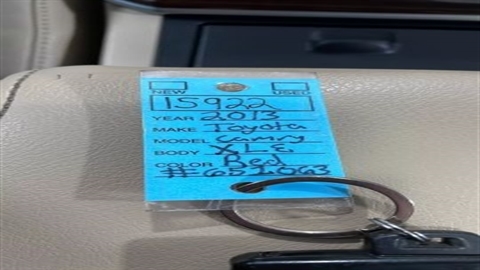 NEW USED
15922
YEAR 2013
MAKE Toyota
MODEL Camry
BODY XLE
COLOR Red
# 652063